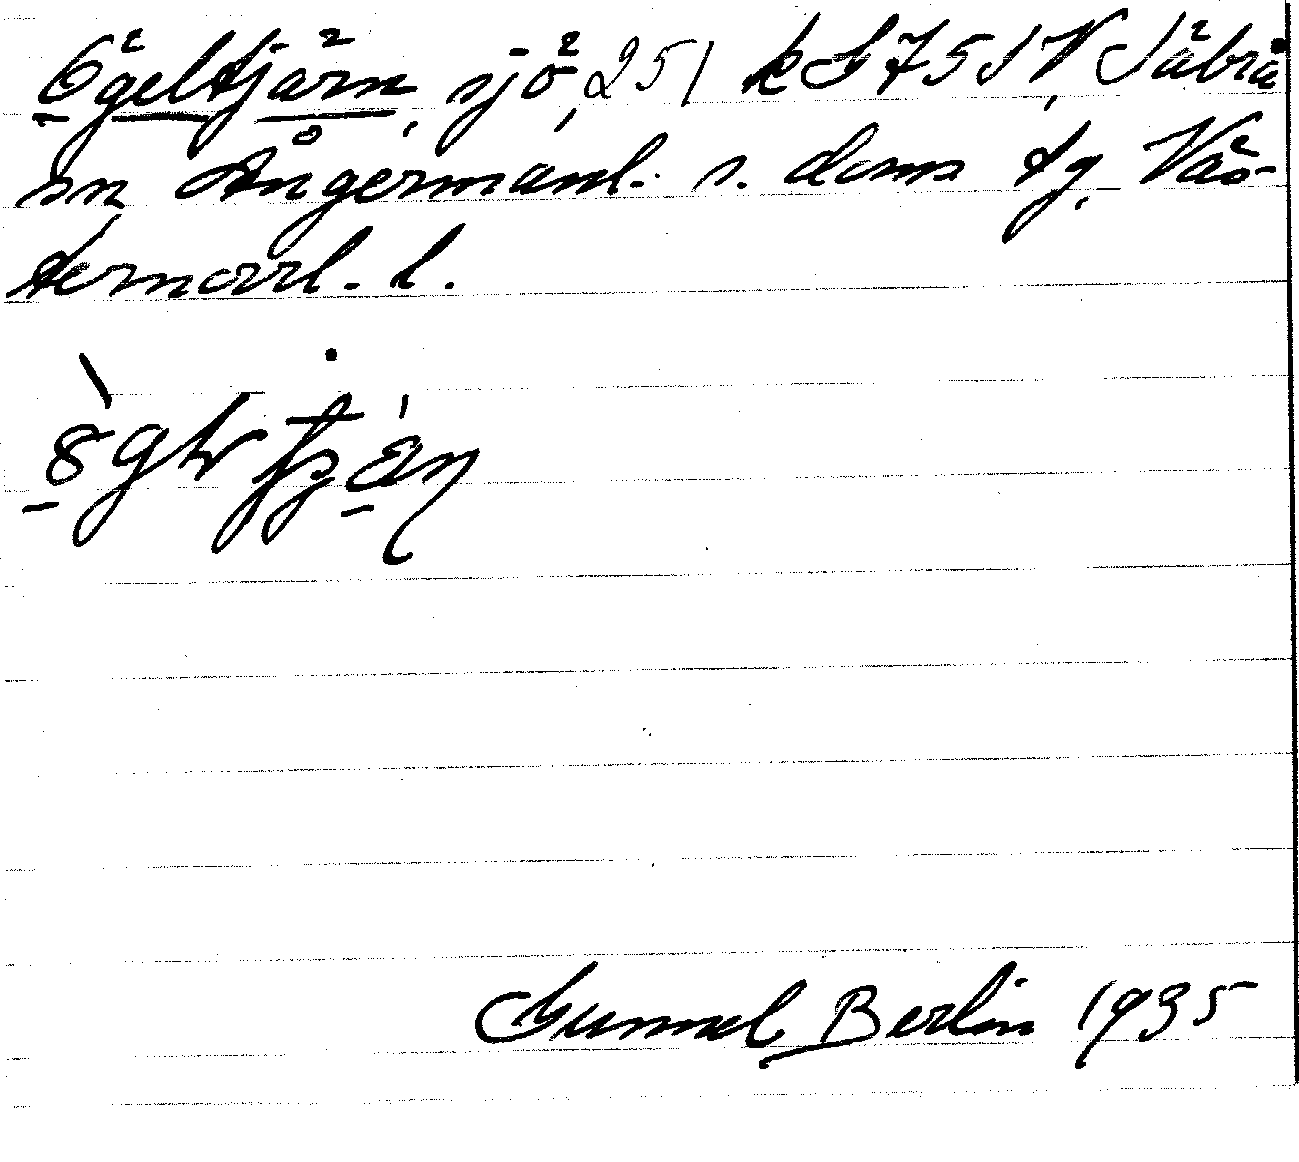 Ögeltjärn, sjö, 251 k S 75 SV, Säbrå
sn Ångermanl. s. doms tg, Väs-
ternorrl. l.
Gunnel Berlin 1935